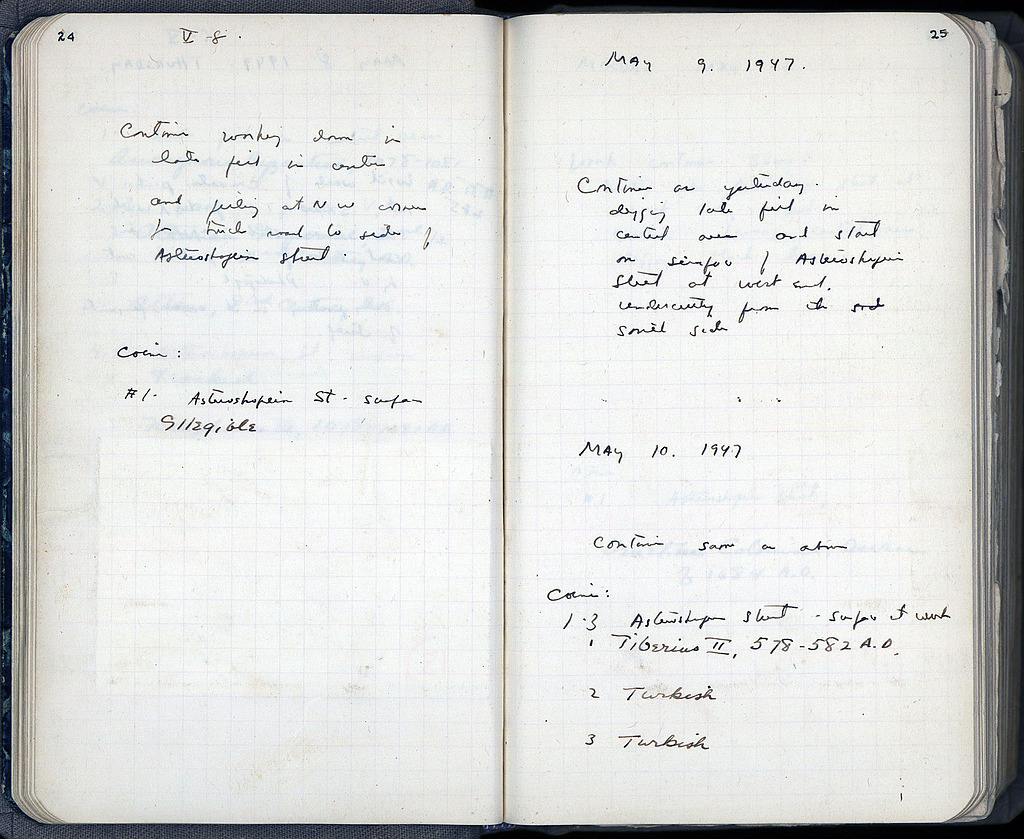 24
V-8.
Continue working down in
late pit in center
and piling at NW corner
for truck road to side of
Asteroskopeion Street.
Coin:
#1. Asteroskopeion St - surface
Illegible
25
May 9. 1947.
Continue as yesterday.
digging late pit in
central area and start
on surface / Asteroskopeion
Street at west end.
undercutting from the
south side
May 10. 1947
Continue same as above
Coins:
1-3 Asteroskopeion Street - surface at work
1 Tiberius II, 578-582 A.D.
2 Turkish
3 Turkish